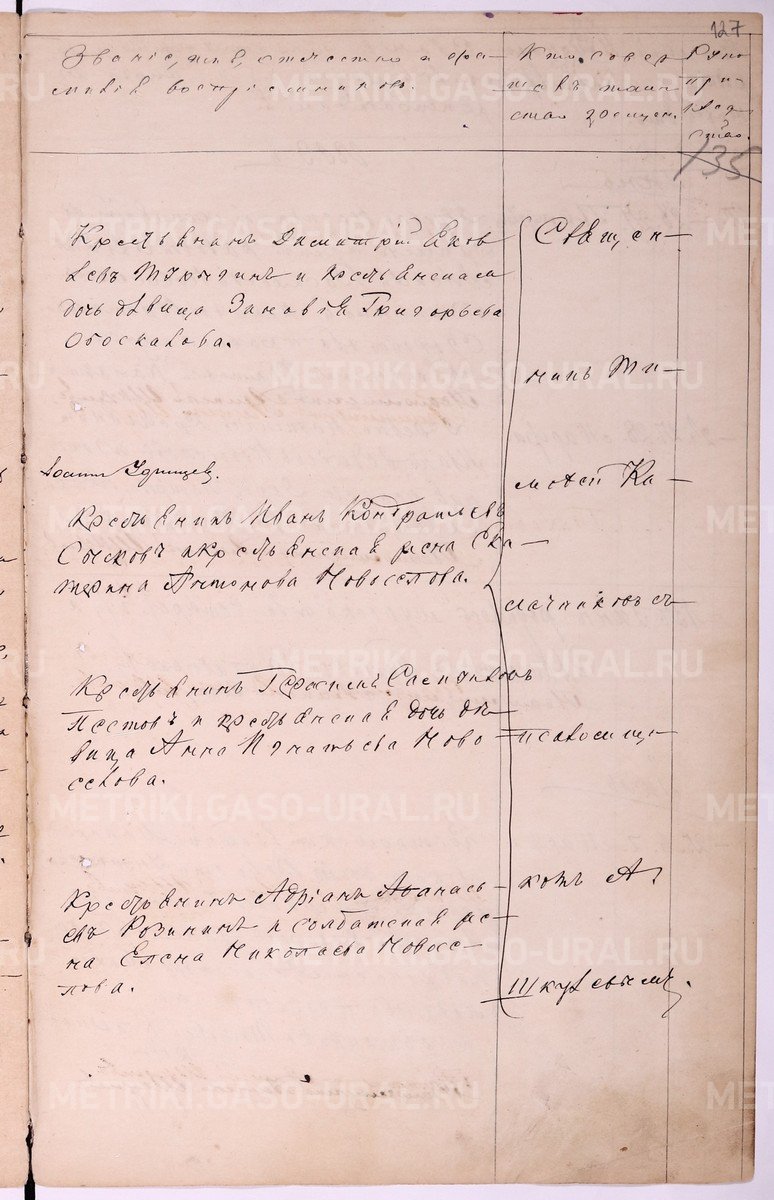 127
Званіе, имя, отчество и фа-
миліѧ воспріемниковъ.
Кто совер
шавъ таин
ство крещен.
Руко
при
клад
ство.
135
Крестьянинъ Димитрій Яков
левъ и крестьянская
дочь дѣвица Зиновія Григорьева
Обоскалова.
Іоаннъ
Крестьянинъ Иванъ Кондратьевъ
Сысковъ и крестьянская жена Ека-
терина Антонова Новоселова.
Крестьянинъ
Пестовъ и крестьянская дочь дѣ-
вица Анна Игнатьева Ново-
селова.
Крестьянинъ Адріанъ Аѳанась-
евъ и солдатская же-
на Елена Николаева Новосе-
лова.
Священ-
никъ Ти-
моѳей Ка-
лачниковъ съ
псаломщи-
комъ А.
Шкулевымъ.
METRIKI.GASO-URAL.RU